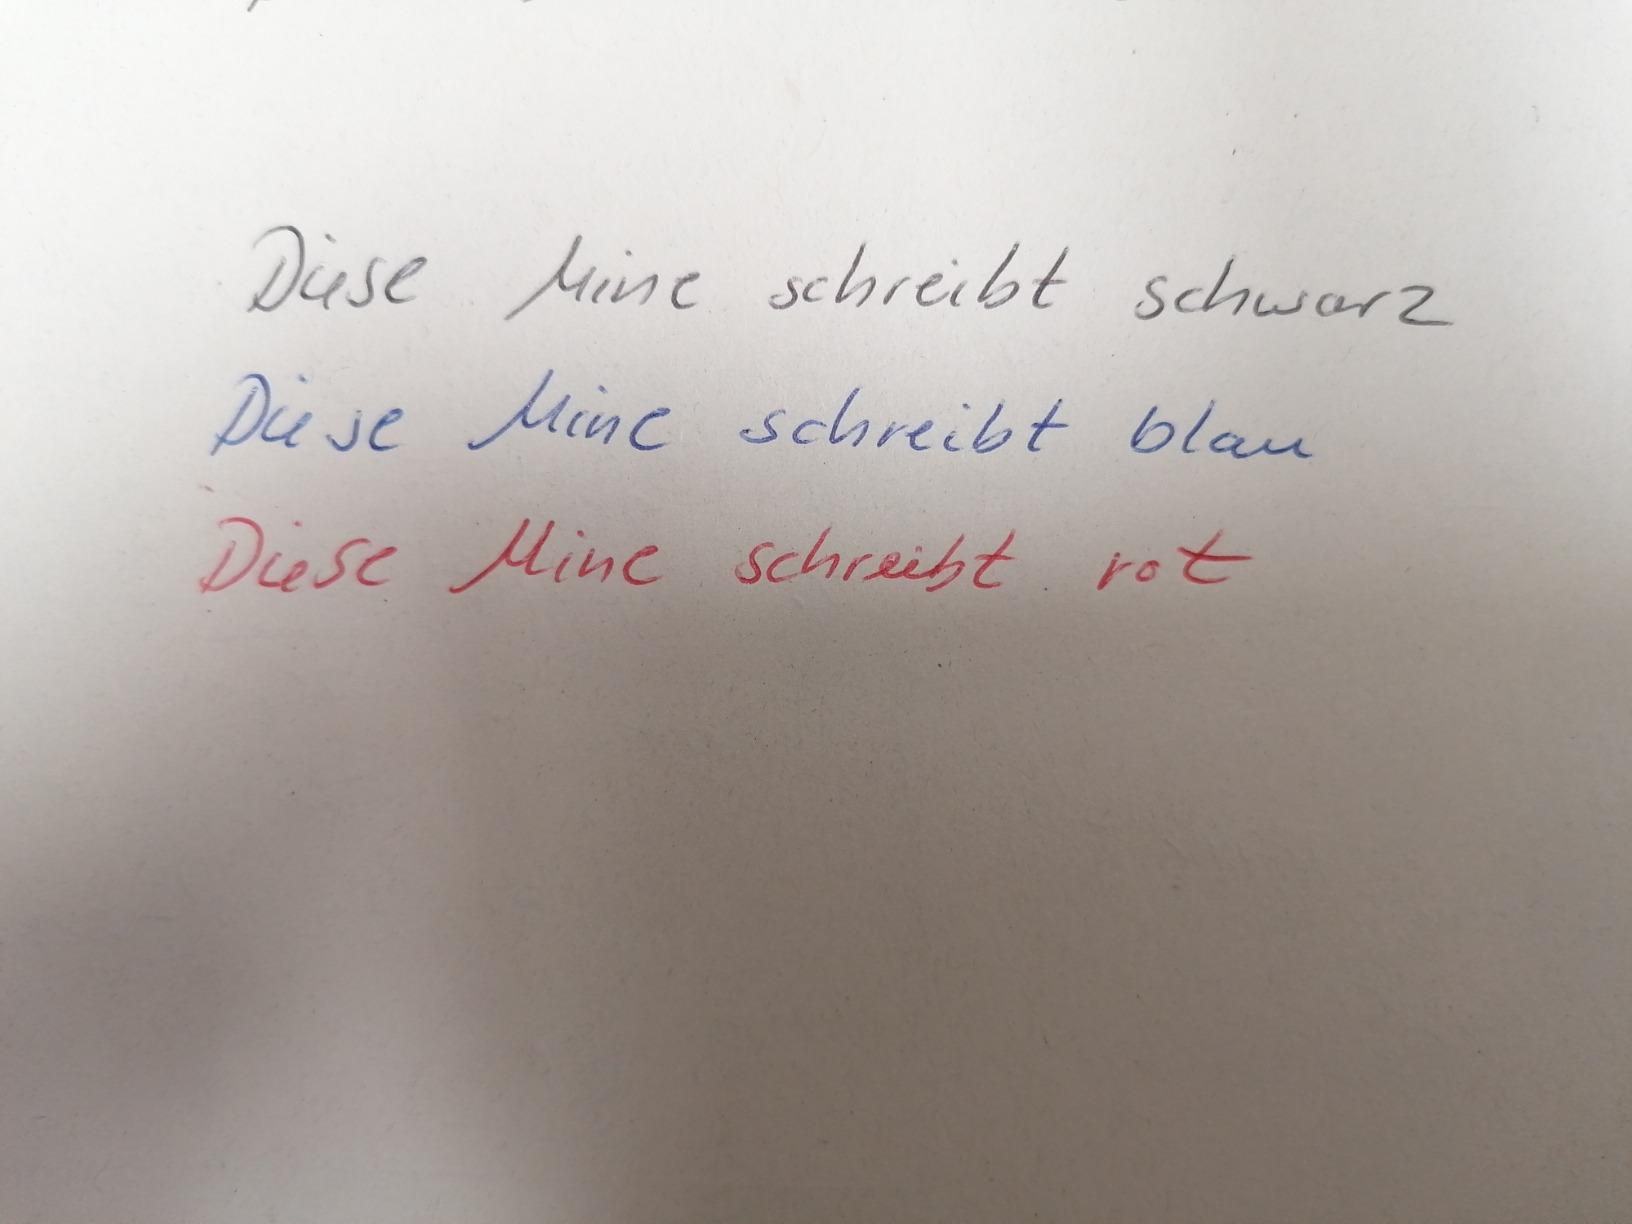 Diese Mine schreibt schwarz
Diese Mine schreibt blau
Diese Mine schreibt rot